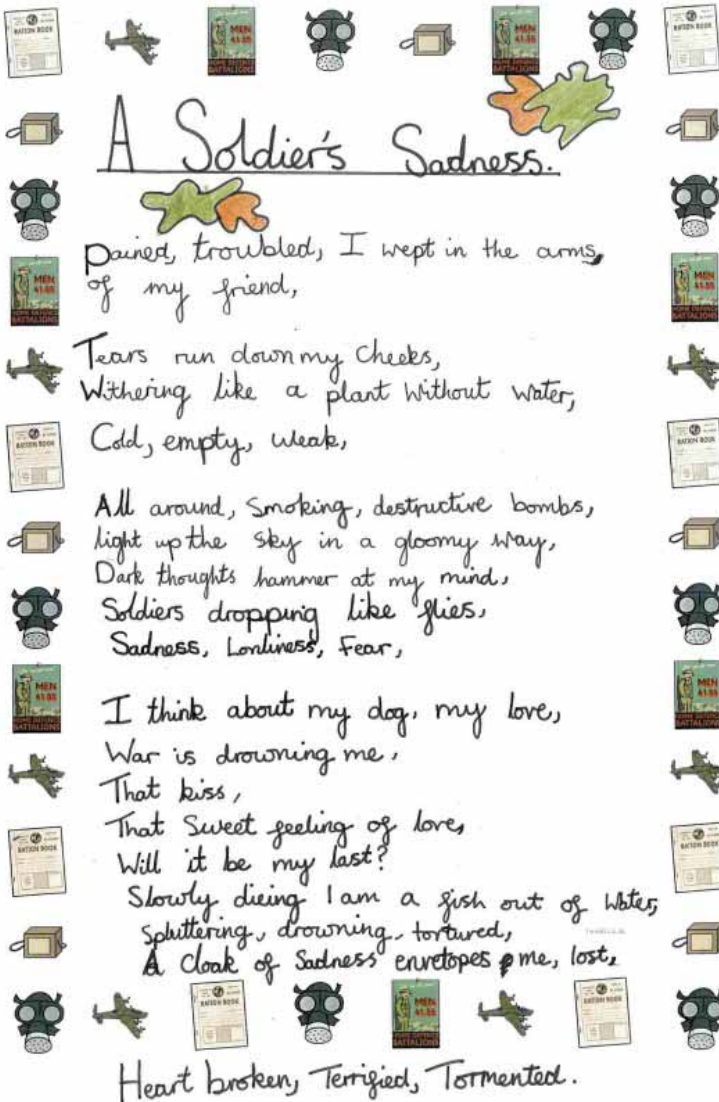 A Soldier's Sadness.
Pained, troubled, I wept in the arms,
of my friend,
Tears run down my cheeks,
Withering like a plant without water,
Cold, empty, weak,
All around, smoking, destructive bombs,
light up the sky in a gloomy way,
Dark thoughts hammer at my mind,
Soldiers dropping like flies,
Sadness, Lonliness, Fear,
I think about my dog, my love,
War is drowning me,
That kiss,
That sweet feeling of love,
Will it be my last?
Slowly dieing I am a fish out of water,
spluttering, drowning, tortured,
A cloak of sadness envelopes me, lost,
Heart broken, Terrified, Tormented.
RATION BOOK
MEN
41-55
HOME DEFENCE
BATTALIONS